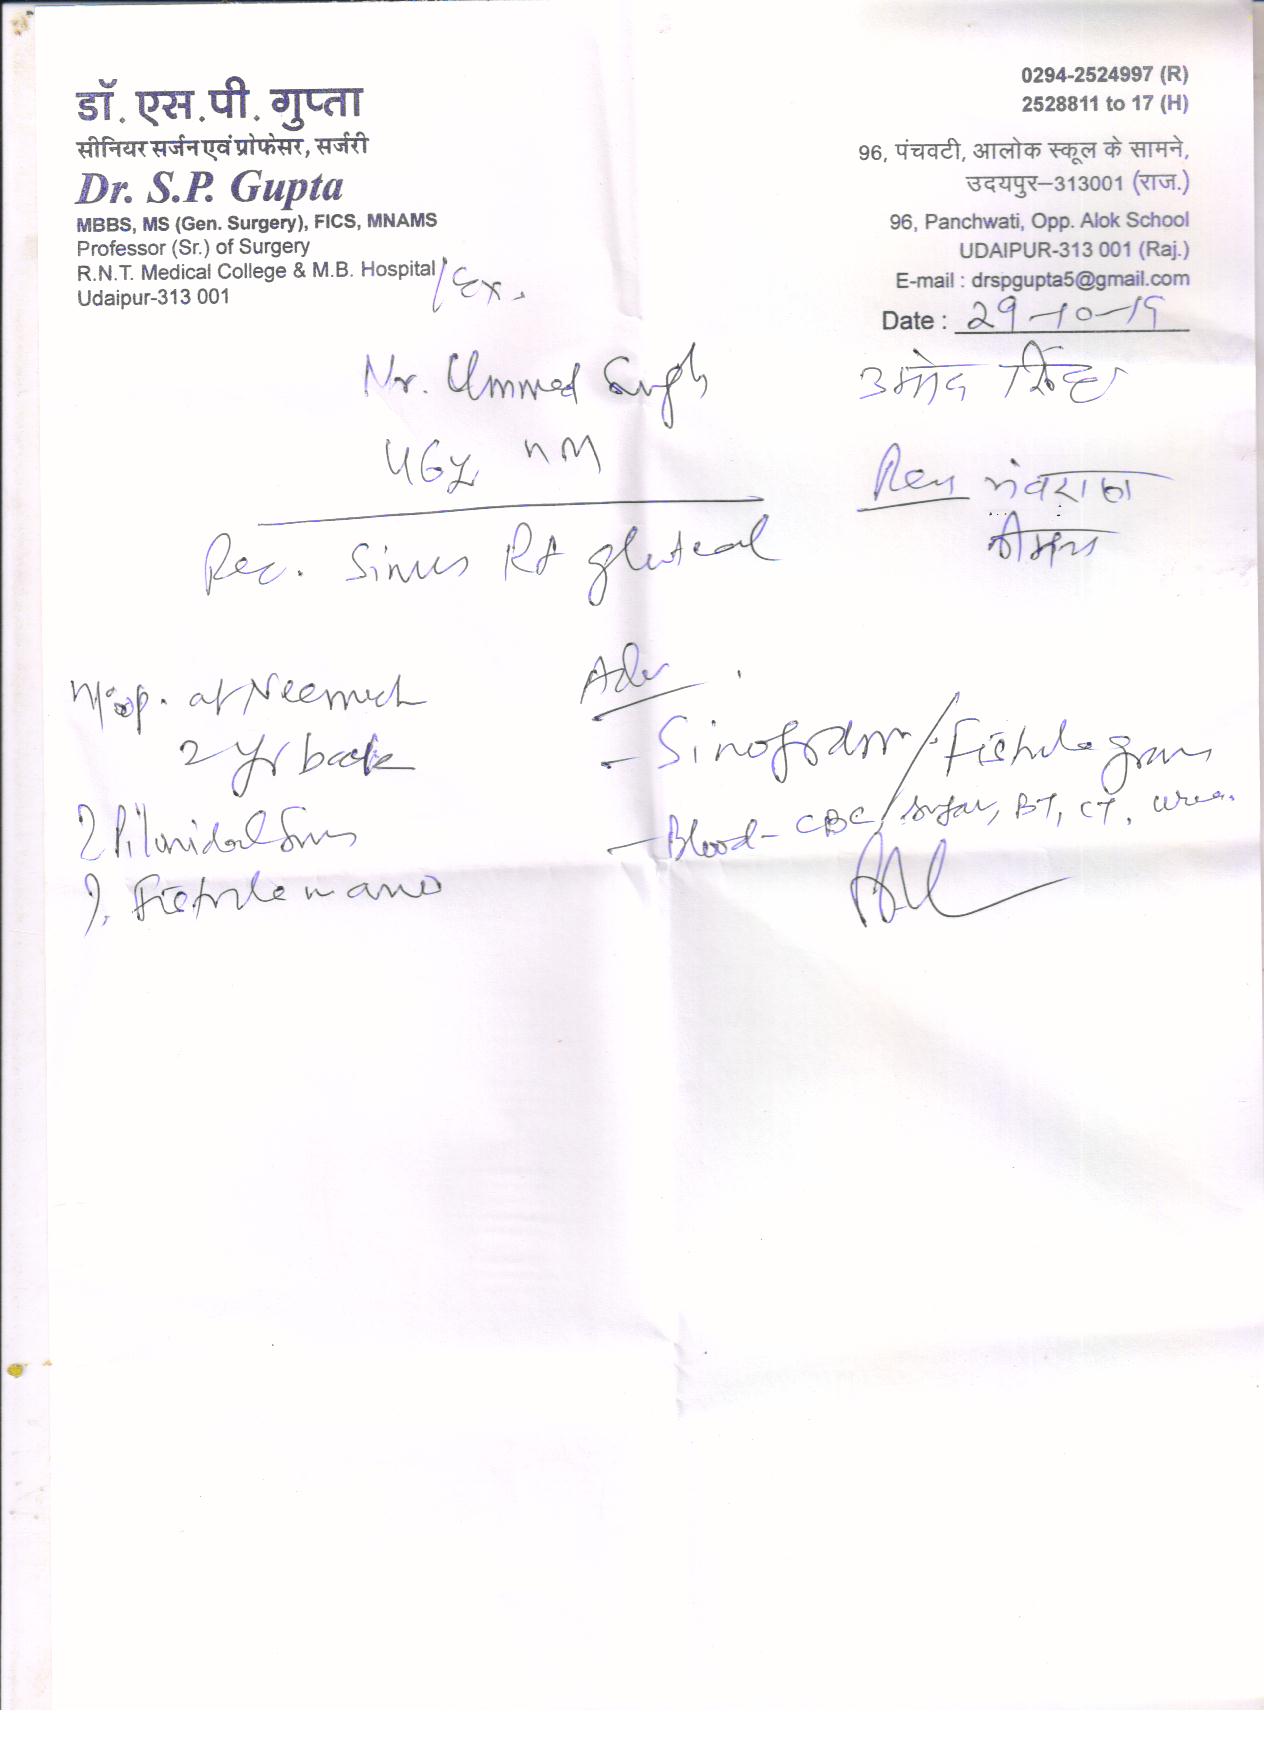 डॉ. एस.पी. गुप्ता
सीनियर सर्जन एवं प्रोफेसर, सर्जरी
Dr. S.P. Gupta
MBBS, MS (Gen. Surgery), FICS, MNAMS
Professor (Sr.) of Surgery
R.N.T. Medical College & M.B. Hospital /Ex.
Udaipur-313 001
0294-2524997 (R)
2528811 to 17 (H)
96, पंचवटी, आलोक स्कूल के सामने,
उदयपुर–313001 (राज.)
96, Panchwati, Opp. Alok School
UDAIPUR-313 001 (Raj.)
E-mail : drspgupta5@gmail.com
Date : 29-10-15
Mr. Ummed Singh
उमेद सिंह
Rec. Sinus Rt gluteal
op. at Neemuch
2 yr back
? Pilonidal Sinus
?. Fistula in ano
Adv
- Sinogram/Fistulogram
- Blood- CBC, Sugar, BT, CT, urea.